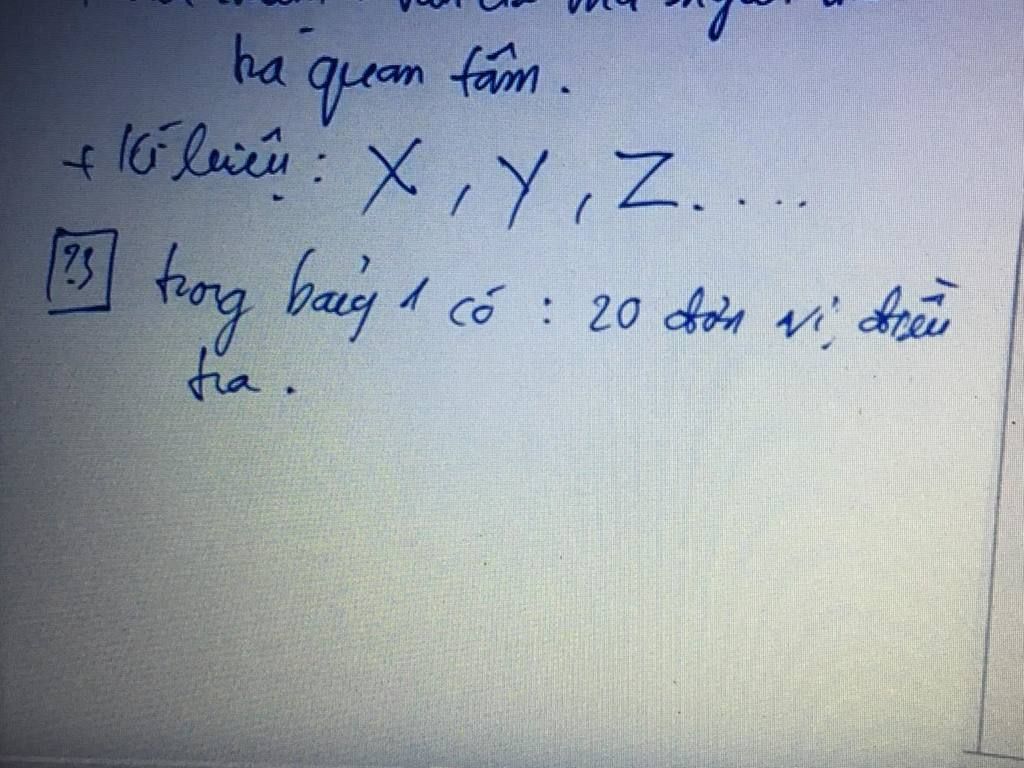 tra quan tâm.
+ Kí hiệu : X, Y, Z....
?3 trong bảng 1 có : 20 đơn vị điều
tra.